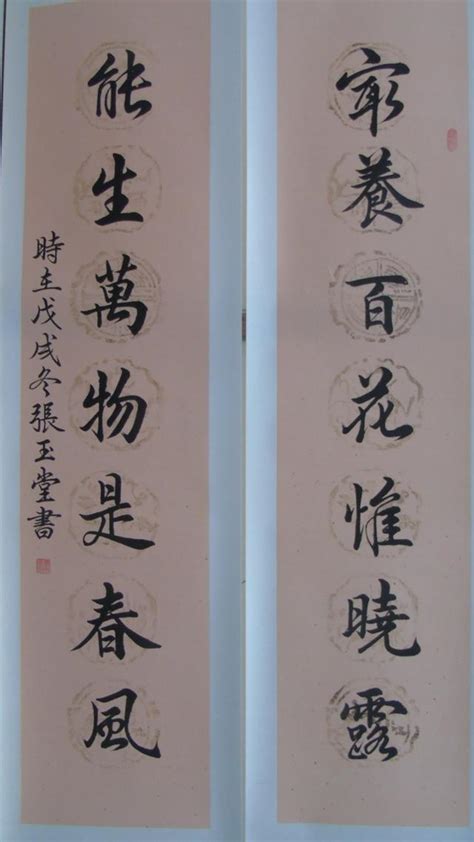 最養百花惟曉露
能生萬物是春風
時在戊戌冬張玉堂書